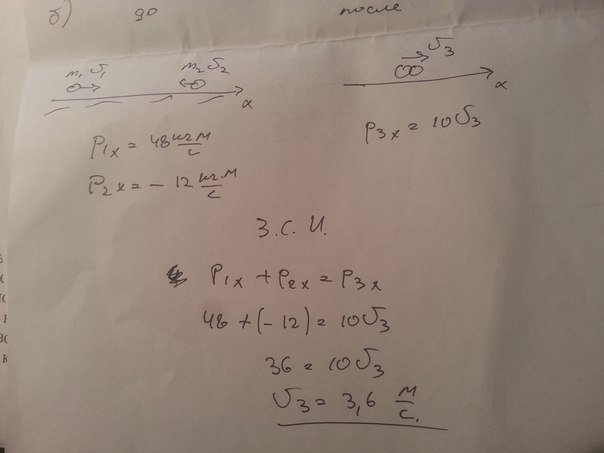 б) до после
m₁ v₁ m₂ v₂ x
v₃ x
P₁ₓ = 48 кг·м/с
P₂ₓ = − 12 кг·м/с
P₃ₓ = 10 v₃
З.С.И.
P₁ₓ + P₂ₓ = P₃ₓ
48 + (− 12) = 10 v₃
36 = 10 v₃
v₃ = 3,6 м/с.